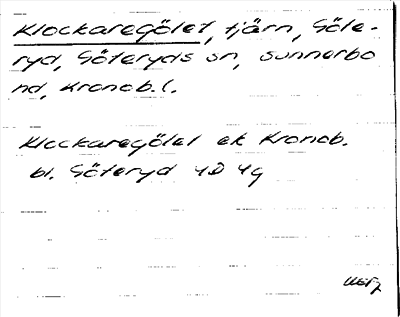 Klockaregölet, tjärn, Göte-
ryd, Göteryds sn, Sunnerbo
nd, Kronob. l.
Klockaregölet ek Kronob.
bl. Göteryd 4D 4g